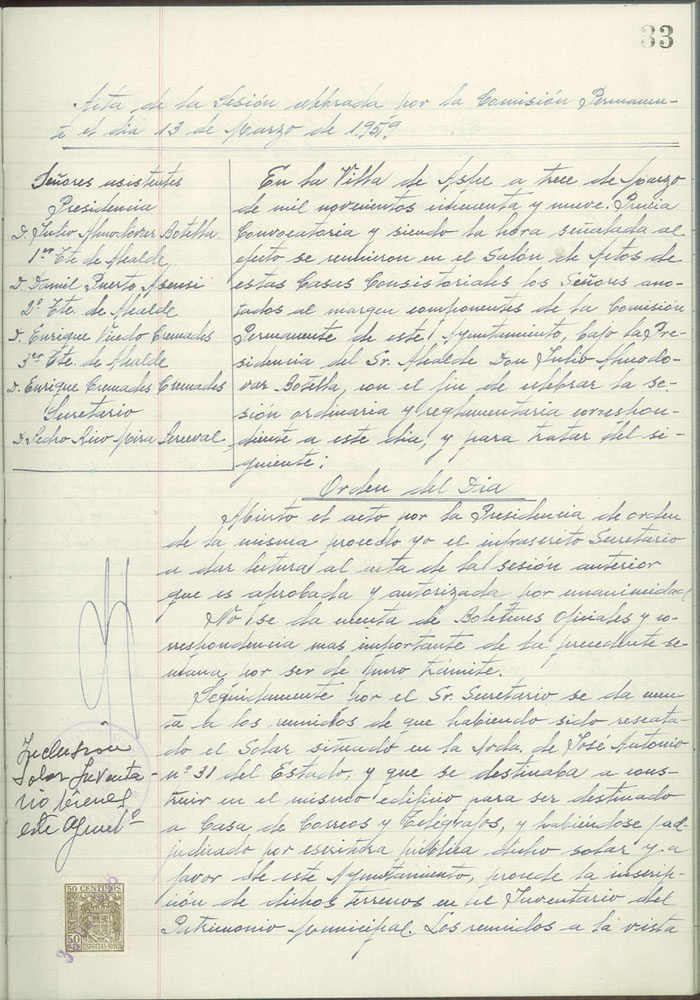 33
Acta de la Sesión celebrada por la Comisión Permanen-
te el dia 13 de Marzo de 1959
Señores asistentes
Presidencia
D. Julio Almodovar Botella
1er Tte de Alcalde
D. Daniel Puerto Asensi
2º Tte. de Alcalde
D. Enrique Cremades
3er Tte. de Alcalde
D. Enrique Cremades Cremades
Secretario
D. Pedro Rico Mira
En la Villa de Aspe a trece de Marzo
de mil novecientos cincuenta y nueve. Previa
Convocatoria y siendo la hora señalada al
efecto se reunieron en el Salón de Actos de
estas Casas Consistoriales los Señores ano-
tados al margen componentes de la Comisión
Permanente de este Ayuntamiento, bajo la Pre-
sidencia del Sr. Alcalde Don Julio Almodo-
var Botella, con el fin de celebrar la se-
sión ordinaria y reglamentaria correspon-
diente a este dia, y para tratar del si-
guiente:
Orden del Dia
Abierto el acto por la Presidencia de orden
de la misma procedo yo el infrascrito Secretario
a dar lectura al acta de la sesión anterior
que es aprobada y autorizada por unanimidad
No se da cuenta de Boletines Oficiales y co-
rrespondencia mas importante de la precedente se-
mana por ser de puro trámite.
Seguidamente por el Sr. Secretario se da cuen-
ta a los reunidos de que habiendo sido rescata-
do el Solar situado en la Avda. de José Antonio
nº 31 del Estado, y que se destinaba a cons-
truir en el mismo edificio para ser destinado
a Casa de Correos y Telégrafos, y habiéndose ad-
judicado por escritura pública dicho solar y a
favor de este Ayuntamiento, procede la inscrip-
ción de dichos terrenos en el Inventario del
Patrimonio Municipal. Los reunidos a la vista
Inclusión
Solar Inventa-
rio bienes
este Ayuntº
50 CENTIMOS
50
ESPECIAL MOVIL